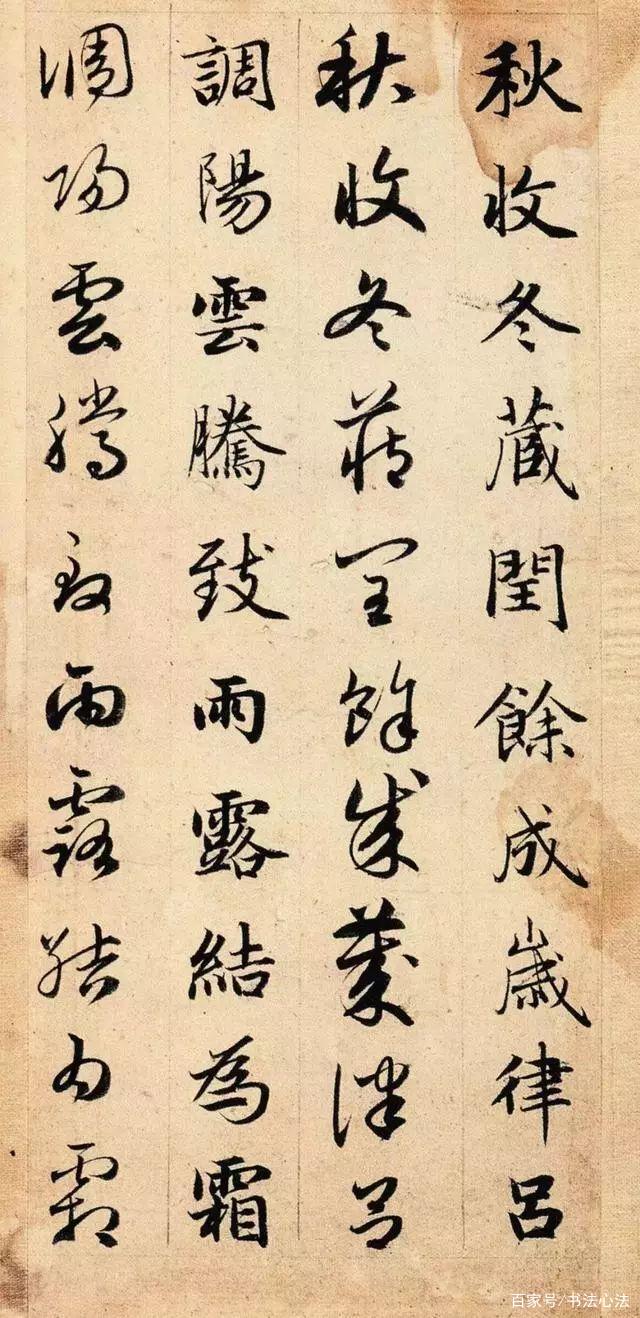 秋收冬藏閏餘成歲律呂
秋收冬藏閏餘成歲律呂
調陽雲騰致雨露結為霜
調陽雲騰致雨露結為霜
百家号/书法心法